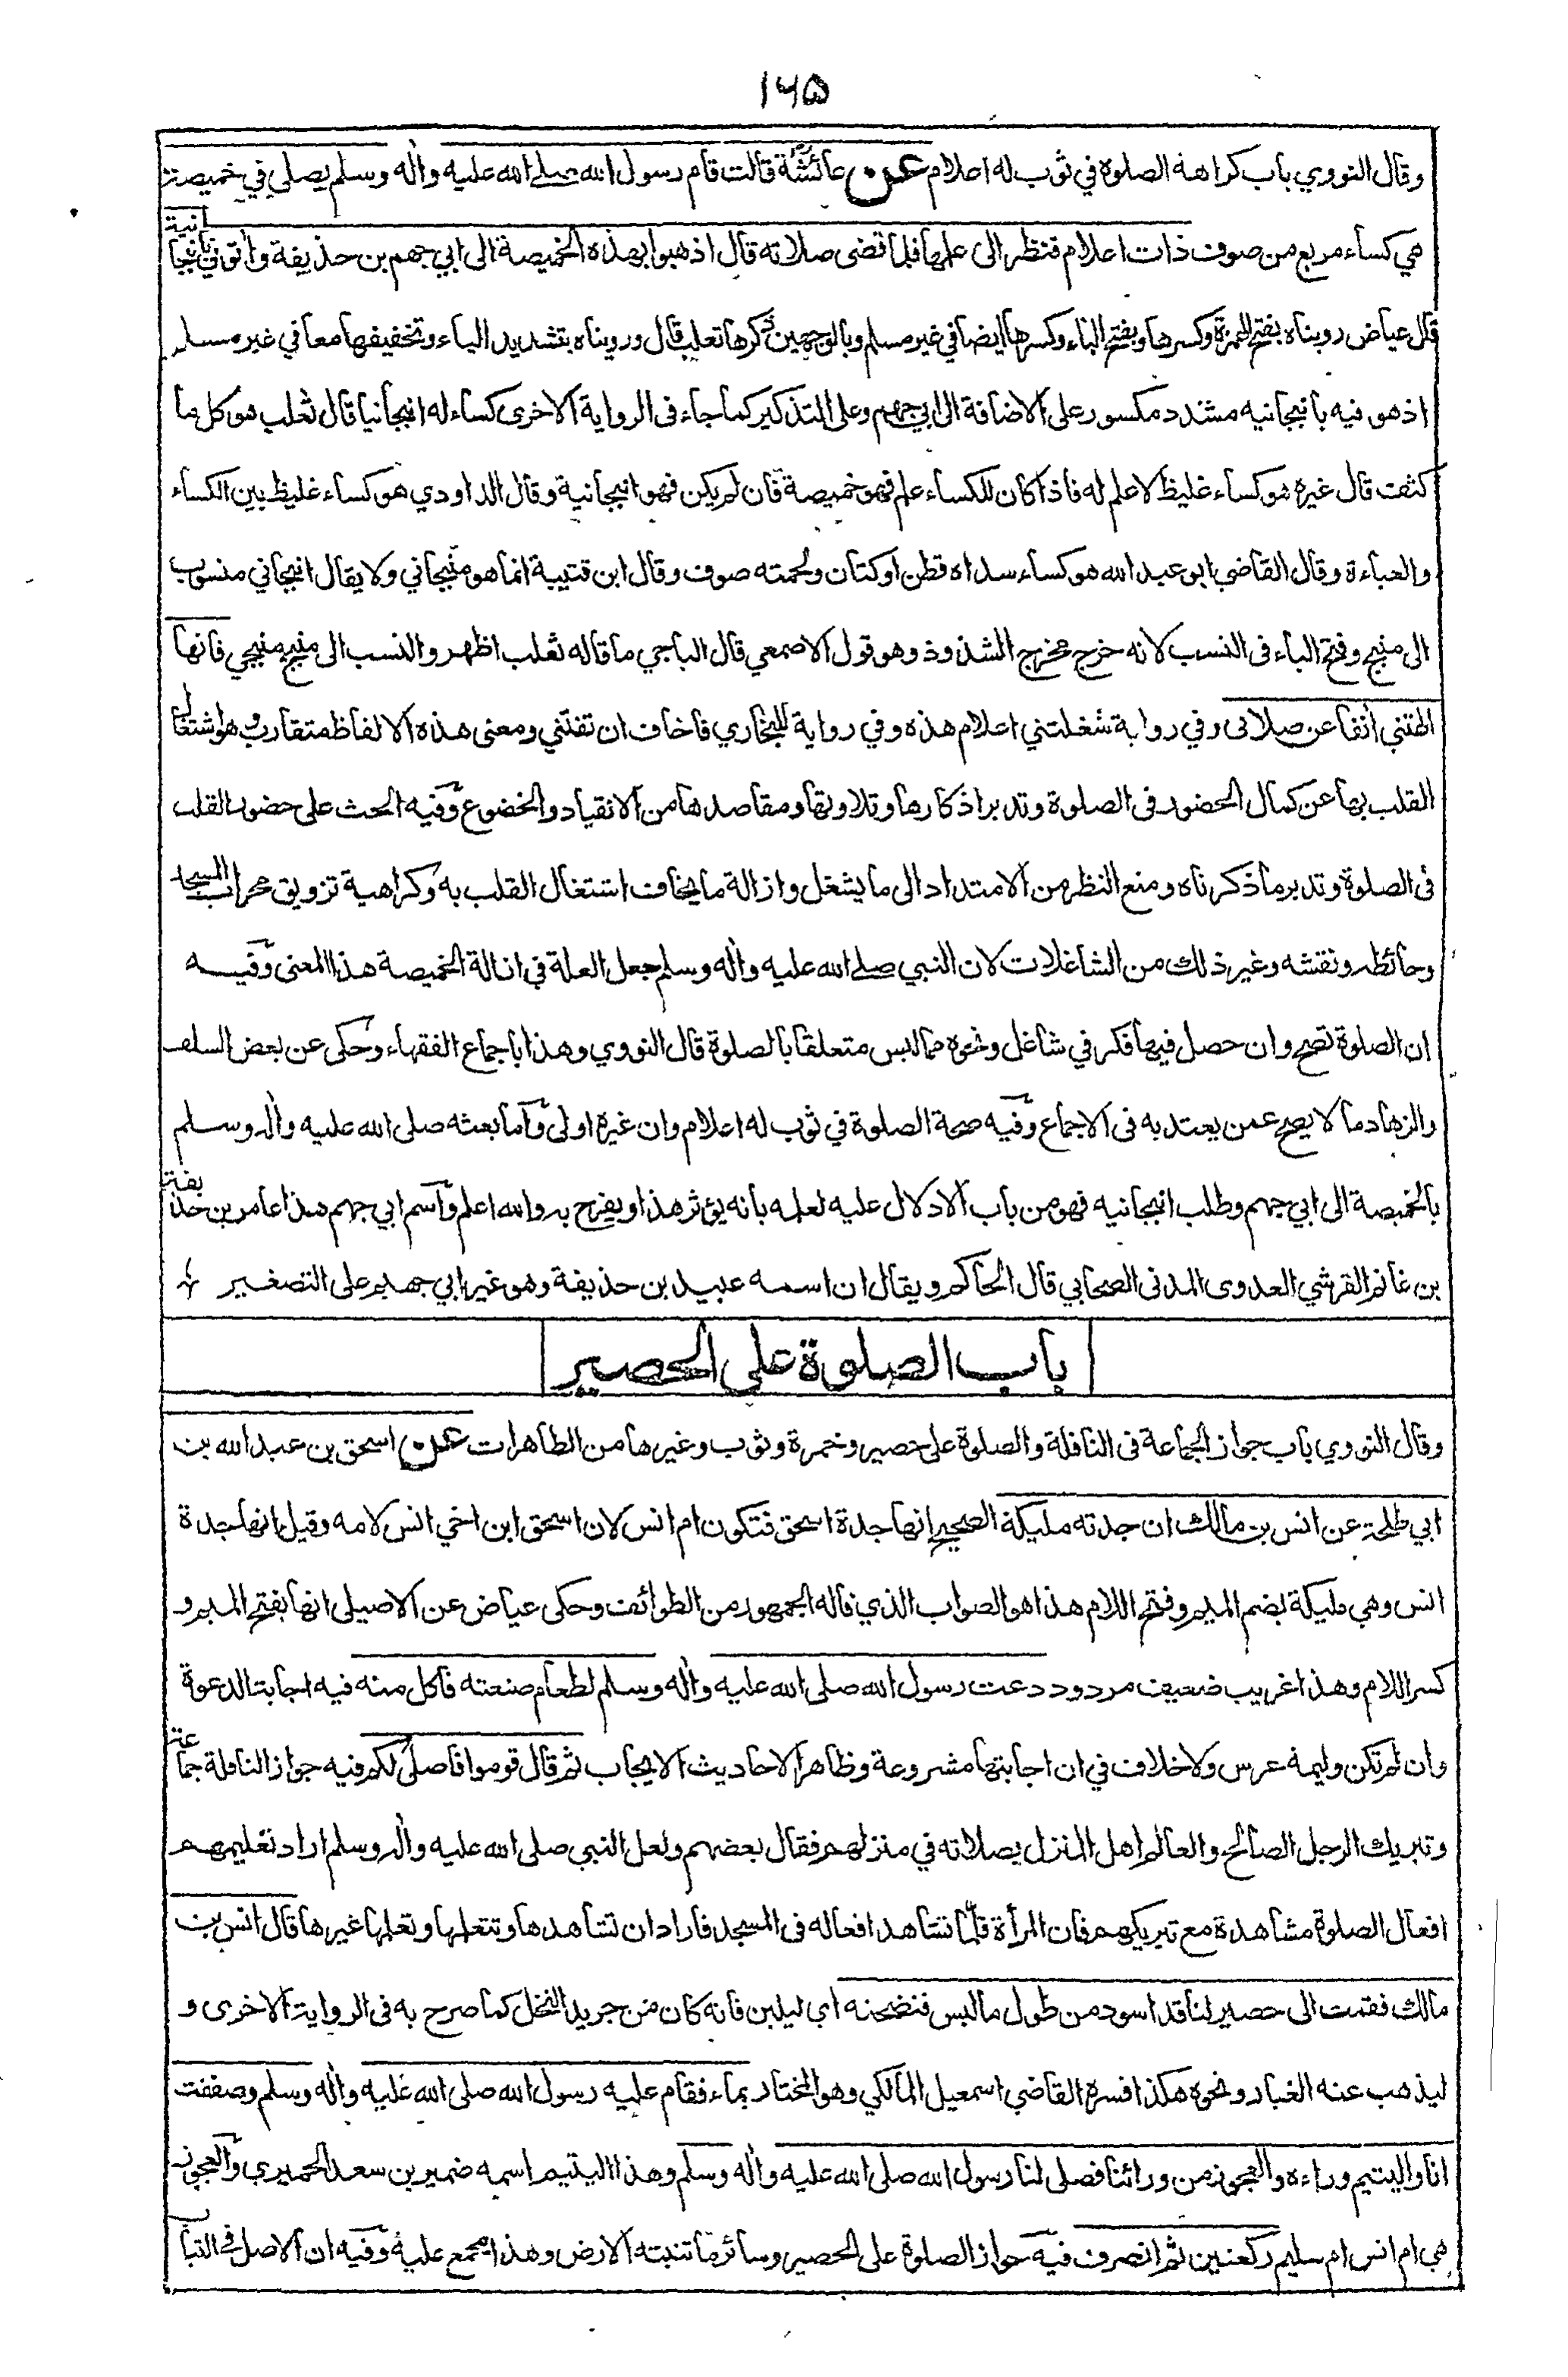 ١٦٥
وقال النووي باب كراهة الصلوة في ثوب له اعلام عن عائشة رض قالت قام رسول الله صلى الله عليه واله وسلم يصلي في خميصة
هي كساء مربع من صوف ذات اعلام فنظر الى علمها فلما قضى صلاته قال اذهبوا بهذه الخميصة الى ابي جهم بن حذيفة وأتوني بانبجانية
قال عياض رويناه بفتح الهمزة وكسرها وبفتح الباء وكسرها ايضا في غير مسلم وبالوجهين ذكرها ثعلب قال ورويناه بتشديد الياء وتخفيفها معا في غير مسلم
اذ هو فيه بانبجانيه مشدد مكسور على الاضافة الى ابي جهم وعلى التذكير كما جاء فى الرواية الاخرى كساء له انبجانيا قال ثعلب هو كل ما
كثف قال غيره هو كساء غليظ لا علم له فاذا كان للكساء علم فهو خميصة فان لم يكن فهو انبجانية وقال الداودي هو كساء غليظ بين الكساء
والعباءة وقال القاضي ابو عبد الله هو كساء سداه قطن او كتان ولحمته صوف وقال ابن قتيبة انما هو منبجاني ولا يقال انبجاني منسوب
الى منبج وفتح الباء فى النسب لانه خرج مخرج الشذوذ وهو قول الاصمعي قال الباجي ما قاله ثعلب اظهر والنسب الى منبج منبجي فانها
الهتني أنفا عن صلاتى وفي رواية شغلتني اعلام هذه وفي رواية للبخاري فاخاف ان تفتنني ومعنى هذه الالفاظ متقارب وهو اشتغال
القلب بها عن كمال الحضور فى الصلوة وتدبر اذكارها وتلاوتها ومقاصدها من الانقياد والخضوع وفيه الحث على حضور القلب
فى الصلوة وتدبر ما ذكرناه ومنع النظر من الامتداد الى ما يشغل وازالة ما يخاف اشتغال القلب به وكراهية تزويق محراب المسجد
وحائطه ونقشه وغير ذلك من الشاغلات لان النبي صلى الله عليه واله وسلم جعل العلة في ازالة الخميصة هذا المعنى وفيه
ان الصلوة تصح وان حصل فيها فكر في شاغل ونحوه مما ليس متعلقا بالصلوة قال النووي وهذا باجماع الفقهاء وحكى عن بعض السلف
والزهاد ما لا يصح عمن يعتد به فى الاجماع وفيه صحة الصلوة في ثوب له اعلام وان غيره اولى وأما بعثه صلى الله عليه واله وسلم
بالخميصة الى ابي جهم وطلب انبجانيه فهو من باب الادلال عليه لعلمه بانه يؤثر هذا ويفرح به والله اعلم واسم ابي جهم هذا عامر بن حذيفة
بن غانم القرشي العدوى المدنى الصحابي قال الحاكم ويقال ان اسمه عبيد بن حذيفة وهو غير ابي جهيم على التصغير
باب الصلوة على الحصير
وقال النووي باب جواز الجماعة فى النافلة والصلوة على حصير وخمرة وثوب وغيرها من الطاهرات عن اسحق بن عبد الله بن
ابي طلحة عن انس بن مالك ان جدته مليكة الصحيح انها جدة اسحق فتكون ام انس لان اسحق ابن اخي انس لامه وقيل انها جدة
انس وهي مليكة بضم الميم وفتح اللام هذا هو الصواب الذي قاله الجمهور من الطوائف وحكى عياض عن الاصيلى انها بفتح الميم و
كسر اللام وهذا غريب ضعيف مردود دعت رسول الله صلى الله عليه واله وسلم لطعام صنعته فاكل منه فيه اجابة الدعوة
وان لم تكن وليمة عرس ولا خلاف في ان اجابتها مشروعة وظاهر الاحاديث الايجاب ثم قال قوموا فاصلي لكم فيه جواز النافلة جماعة
وتبريك الرجل الصالح والعالم اهل المنزل بصلاته في منزلهم فقال بعضهم ولعل النبي صلى الله عليه واله وسلم اراد تعليمهم
افعال الصلوة مشاهدة مع تبريكهم فان المرأة قلما تشاهد افعاله فى المسجد فاراد ان تشاهدها وتتعلمها وتعلمها غيرها قال انس بن
مالك فقمت الى حصير لنا قد اسود من طول ما لبس فنضحته اي ليلين فانه كان من جريد النخل كما صرح به فى الرواية الاخرى و
ليذهب عنه الغبار ونحوه هكذا فسره القاضي اسمعيل المالكي وهو المختار بماء فقام عليه رسول الله صلى الله عليه واله وسلم وصففت
انا واليتيم وراءه والعجوز من ورائنا فصلى لنا رسول الله صلى الله عليه واله وسلم وهذا اليتيم اسمه ضمير بن سعد الحميري والعجوز
هي ام انس ام سليم ركعتين ثم انصرف فيه جواز الصلوة على الحصير وسائر ما تنبته الارض وهذا مجمع عليه وفيه ان الاصل في الثياب